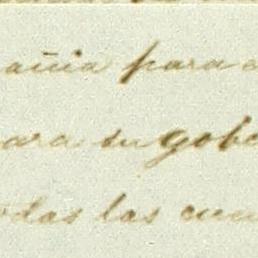 añia para
para su gobe
odas las cuen